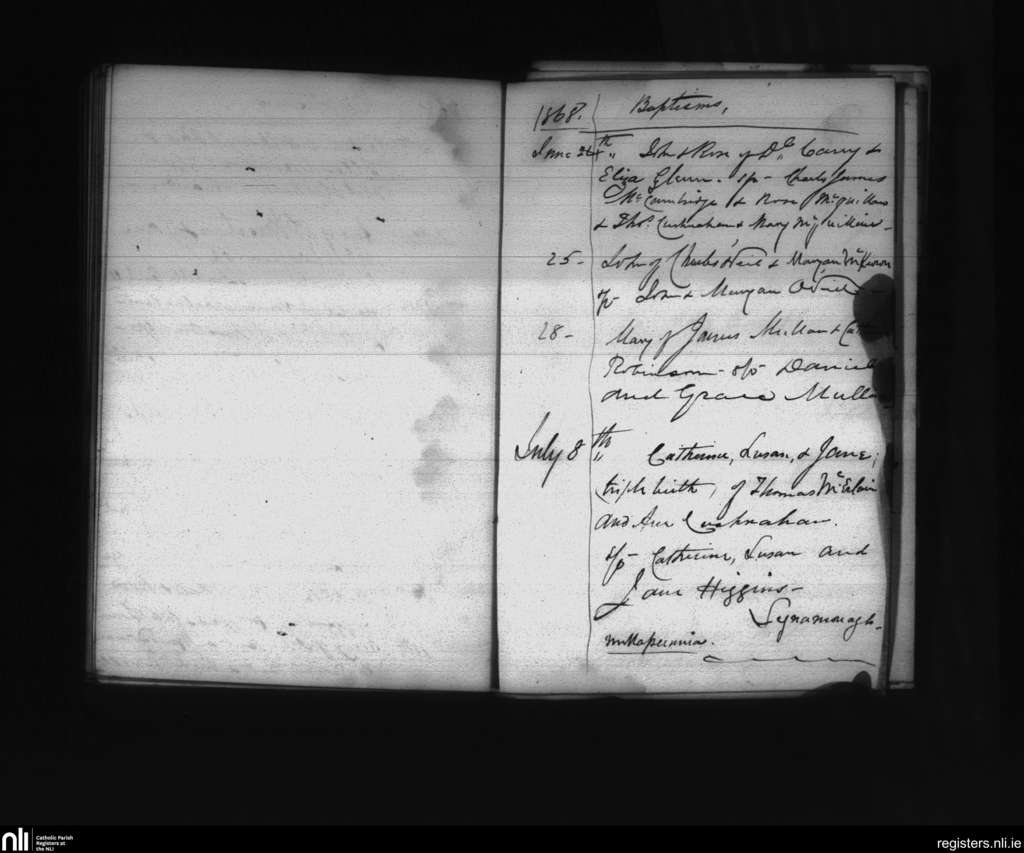 1868. Baptisms,
June 24th " John & Rose of Dl. Carey &
Eliza Glenn. sps - Charls James
McCambridge & Rose McQuillan
& Thos. Cushnahan & Mary McQuillan -
25 - John of Charls O'Neil & Maryan McKeown
sps John & Maryan O'Neil -
28 - Mary of James Mullan &
Robinson - sps Daniel
and Grace Mulla
July 8th " Catherine, Susan, & Jane;
triple birth, of Thomas
and Ann Cushnahan.
sps - Catherine, Susan and
Jane Higgins -

nulla pecunia.
nli Catholic Parish
Registers at
the NLI
registers.nli.ie